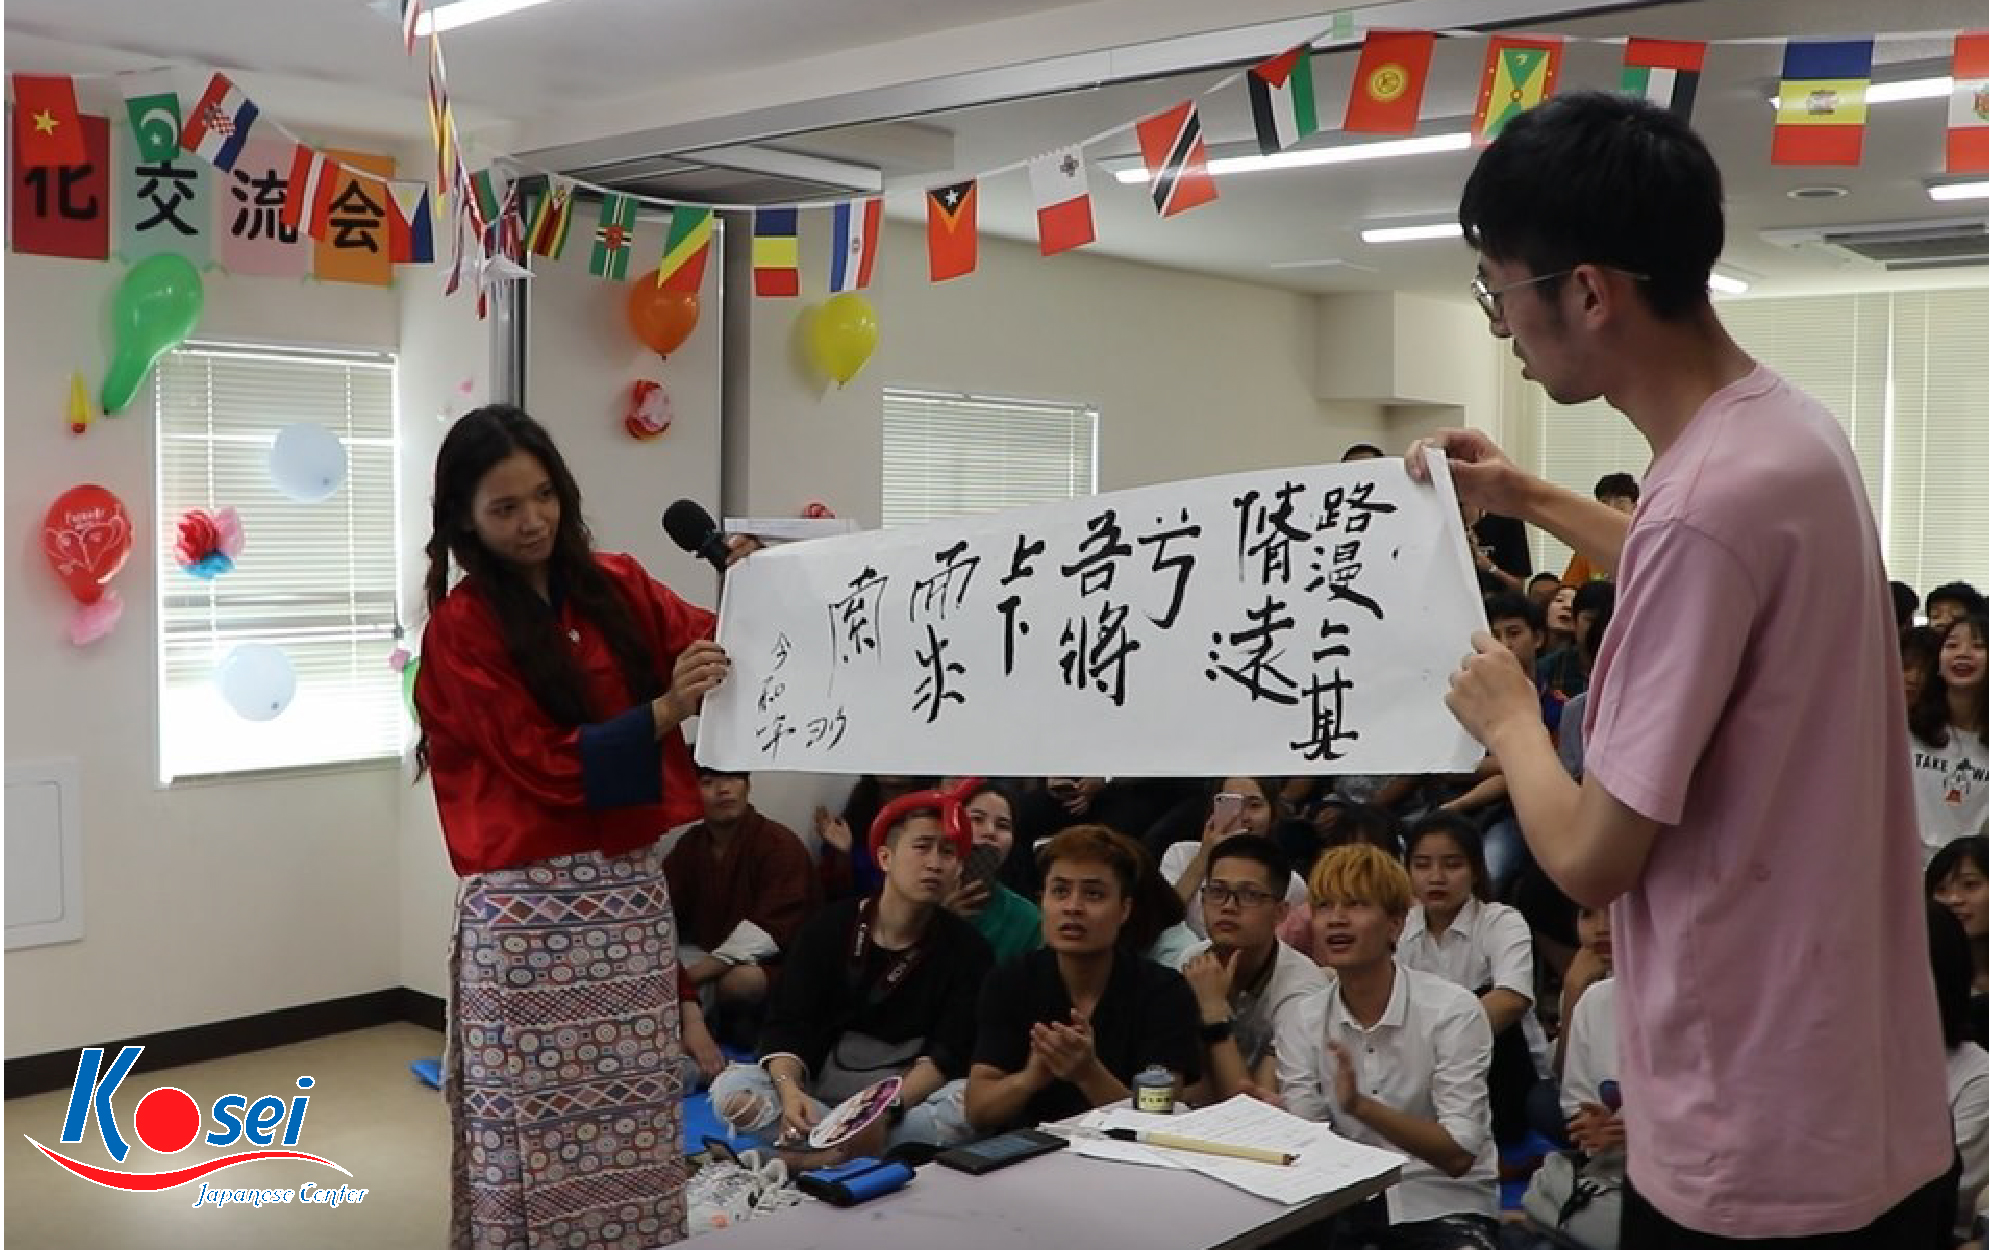 化交流会
路漫〻其
脩遠
兮
吾將
上下
而求
索
令和一年
TAKE
Kosei
Japanese Center